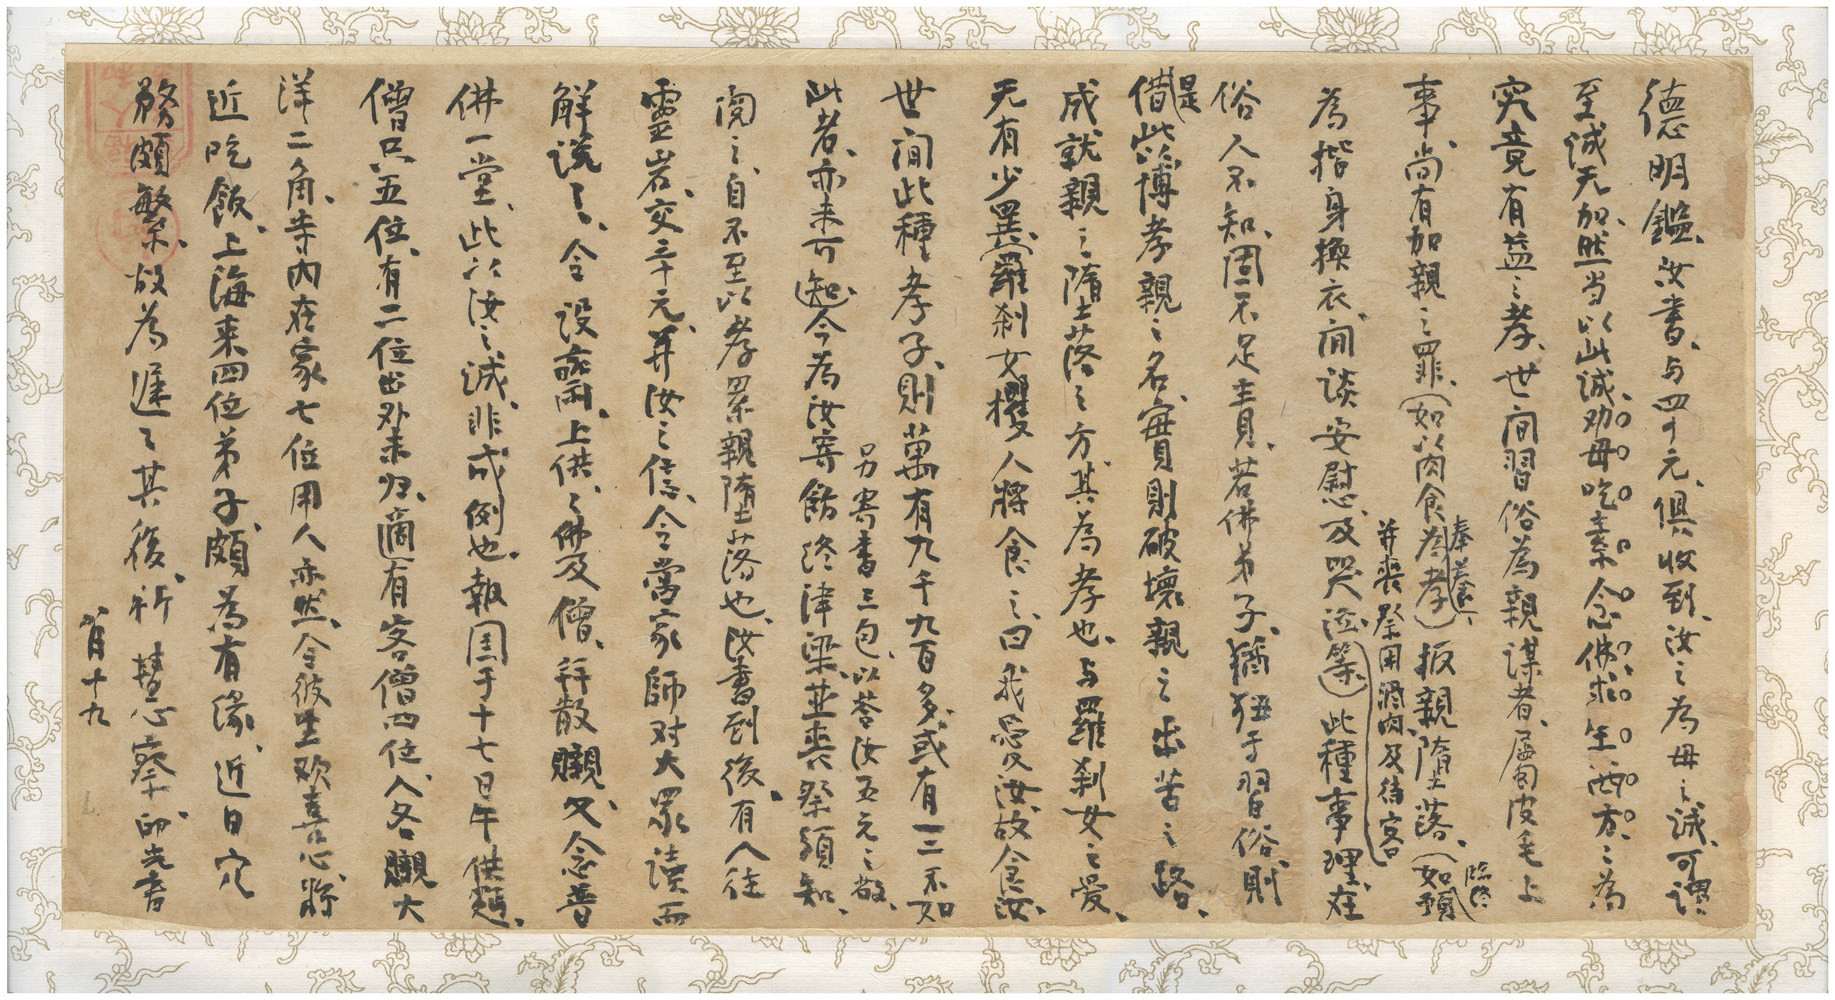 德明鑑汝書与四十元俱收到汝之為母之誠可謂
至誠无加然当以此誠劝母吃素念佛求生西方之為
究竟有益之孝世间習俗為親谋者屬皮毛上
事尚有加親之罪(如以肉食奉養為孝)扳親墮落(如臨終預
為揩身換衣间谈安慰及哭泣等并丧祭用酒肉及待客)此種事理在
俗人不知固不足責若佛弟子猶狃于習俗則
是借此以博孝親之名實則破壞親之出苦之路
成就親之墮落之方其為孝也与羅刹女之爱
无有少異(羅刹女攫人將食之曰我爱汝故食汝
世间此種孝子則萬有九千九百多或有一二不如
此者亦未可知今為汝寄飭終津梁並喪祭須知
另寄書三包以荅汝五元之敬
閱之自不至以孝累親墮落也汝書到後有人往
靈岩交三十元并汝之信令當家師对大眾读而
解说之令设齋上供之佛及僧并散嚫又念普
佛一堂此以汝之誠非成例也報国于十七日午供齋
僧只五位有二位出外未归適有客僧四位人各嚫大
洋二角寺内在家七位用人亦然令彼生欢喜心將
近吃飯上海来四位弟子頗為有缘近日冗
務頗繁故為遲遲其後祈慧察印光書
八月十九